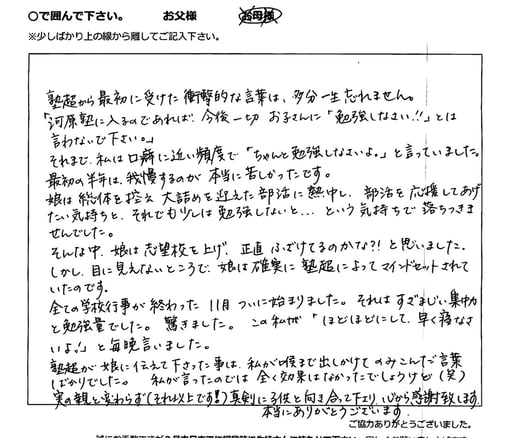 ○で囲んで下さい。 お父様 お母様
※少しばかり上の線から離してご記入下さい。
塾超から最初に受けた衝撃的な言葉は、多分一生忘れません。
「河原塾に入るのであれば、今後一切 お子さんに「勉強しなさい!!」とは
言わないで下さい。」
それまで、私は口癖に近い頻度で「ちゃんと勉強しなさいよ。」と言っていました。
最初の半年は、我慢するのが 本当に苦しかったです。
娘は総体を控え 大詰めを迎えた部活に熱中し、部活を応援してあげ
たい気持ちと、それでも少しは勉強しないと… という気持ちで落ちつきま
せんでした。
そんな中、娘は志望校を上げ、正直 ふざけてるのかな?! と思いました。
しかし、目に見えないところで、娘は確実に塾超によってマインドセットされて
いたのです。
全ての学校行事が終わった 11月 ついに始まりました。それは すざまじい集中力
と勉強量でした。 驚きました。 この私が「ほどほどにして、早く寝なさ
いよ!」と毎晩言いました。
塾超が娘に伝えて下さった事は、私が喉まで出しかけて のみこんだ言葉
ばかりでした。 私が言ったのでは 全く効果はなかったでしょうけど(笑)
実の親と変わらず(それ以上です!!)真剣に子供と向き合って下さり 心から感謝致します。
本当にありがとうございます。
ご協力ありがとうございました。